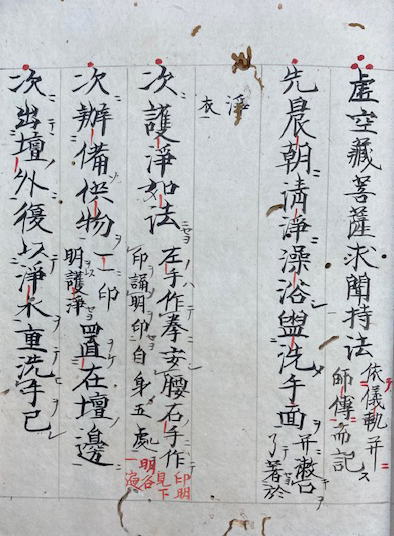 虚空藏菩薩求聞持法 依儀軌并師傳而記ス
先晨朝清淨澡浴盥洗手面 并漱口了著於
淨衣
次護淨如法 左手作拳安腰右手作印誦明印自身五處 印明見下明各一遍
次辦備供物 以一印明護淨 置在壇邊
次出壇外復以淨水重洗手已